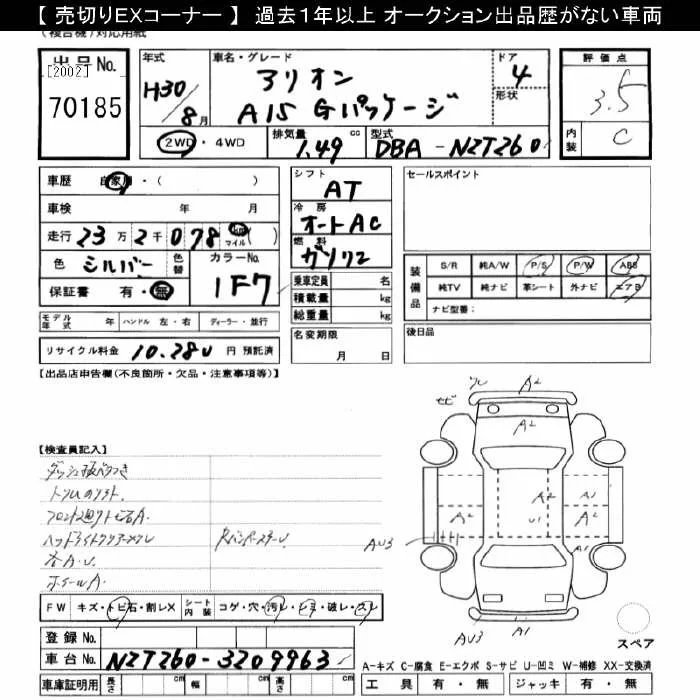 【 売切りEXコーナー 】 過去１年以上 オークション出品歴がない車両
(複合機)対応用紙
出品No.
[2002]
70185
年式 H30/8月
車名・グレード
アリオン
A15 Gパッケージ
ドア 4
形状
2WD・4WD 排気量 1.49 cc 型式 DBA-NZT260
評価点
3.5
内装 C
車歴 自家用・( )
車検 年 月
走行 23万2千078 km マイル ( )
色 シルバー 色替 カラーNo. 1F7
保証書 有・無
モデル年式 年 ハンドル 左・右 ディーラー・並行
リサイクル料金 10.280 円 預託済
シフト AT
冷房 オートAC
燃料 ガソリン
乗車定員 名
積載量 kg
総重量 kg
名変期限
月 日
セールスポイント
装備品
S/R 純A/W P/S P/W ABS
純TV 純ナビ 革シート 外ナビ エアB
ナビ型番：
後日品
【出品店申告欄(不良箇所・欠品・注意事項等)】
【検査員記入】
ホイールA.
FW キズ・トビ石・割レX シート内装 コゲ・穴・汚レ・シミ・破レ・スレ
登録No.
車台No. NZT260-3209963
車庫証明用 長さ cm 幅 cm 高さ cm
A2
A2
A2
A2
A1
U1
A2
AU3
A1
AU3
A1
スペア
A-キズ C-腐食 E-エクボ S-サビ U-凹ミ W-補修 XX-交換済
工具 有・無 ジャッキ 有・無